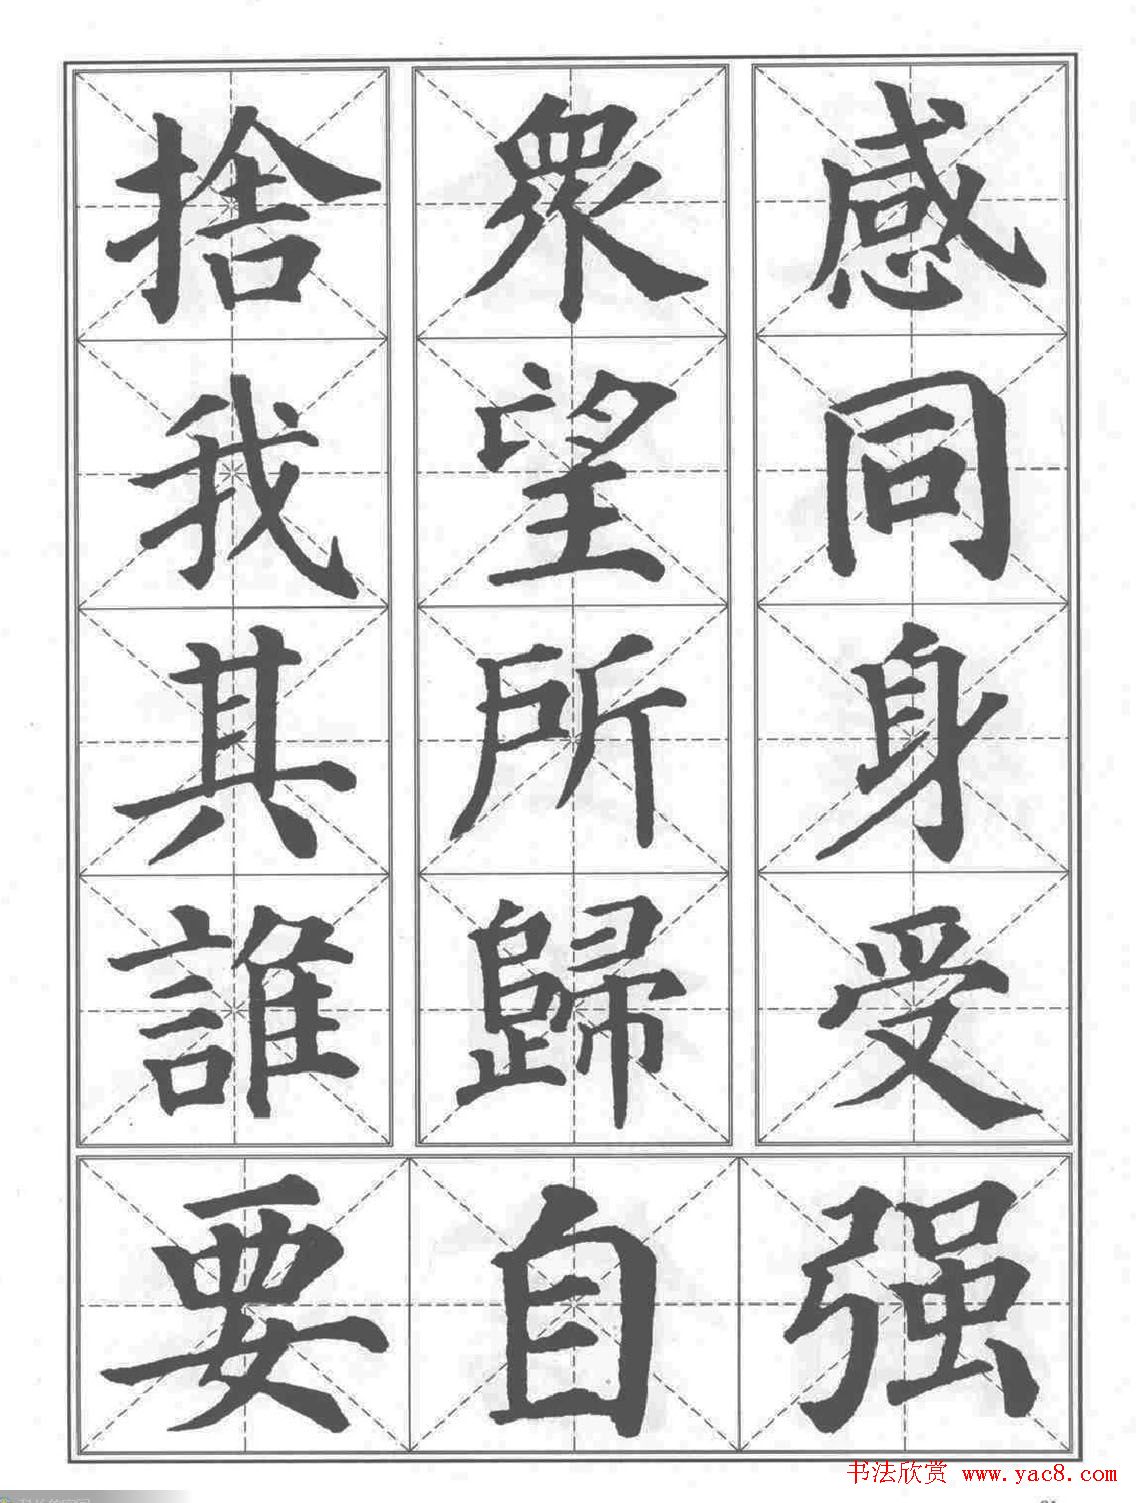 感同身受
眾望所歸
捨我其誰
要自强
书法欣赏 www.yac8.com